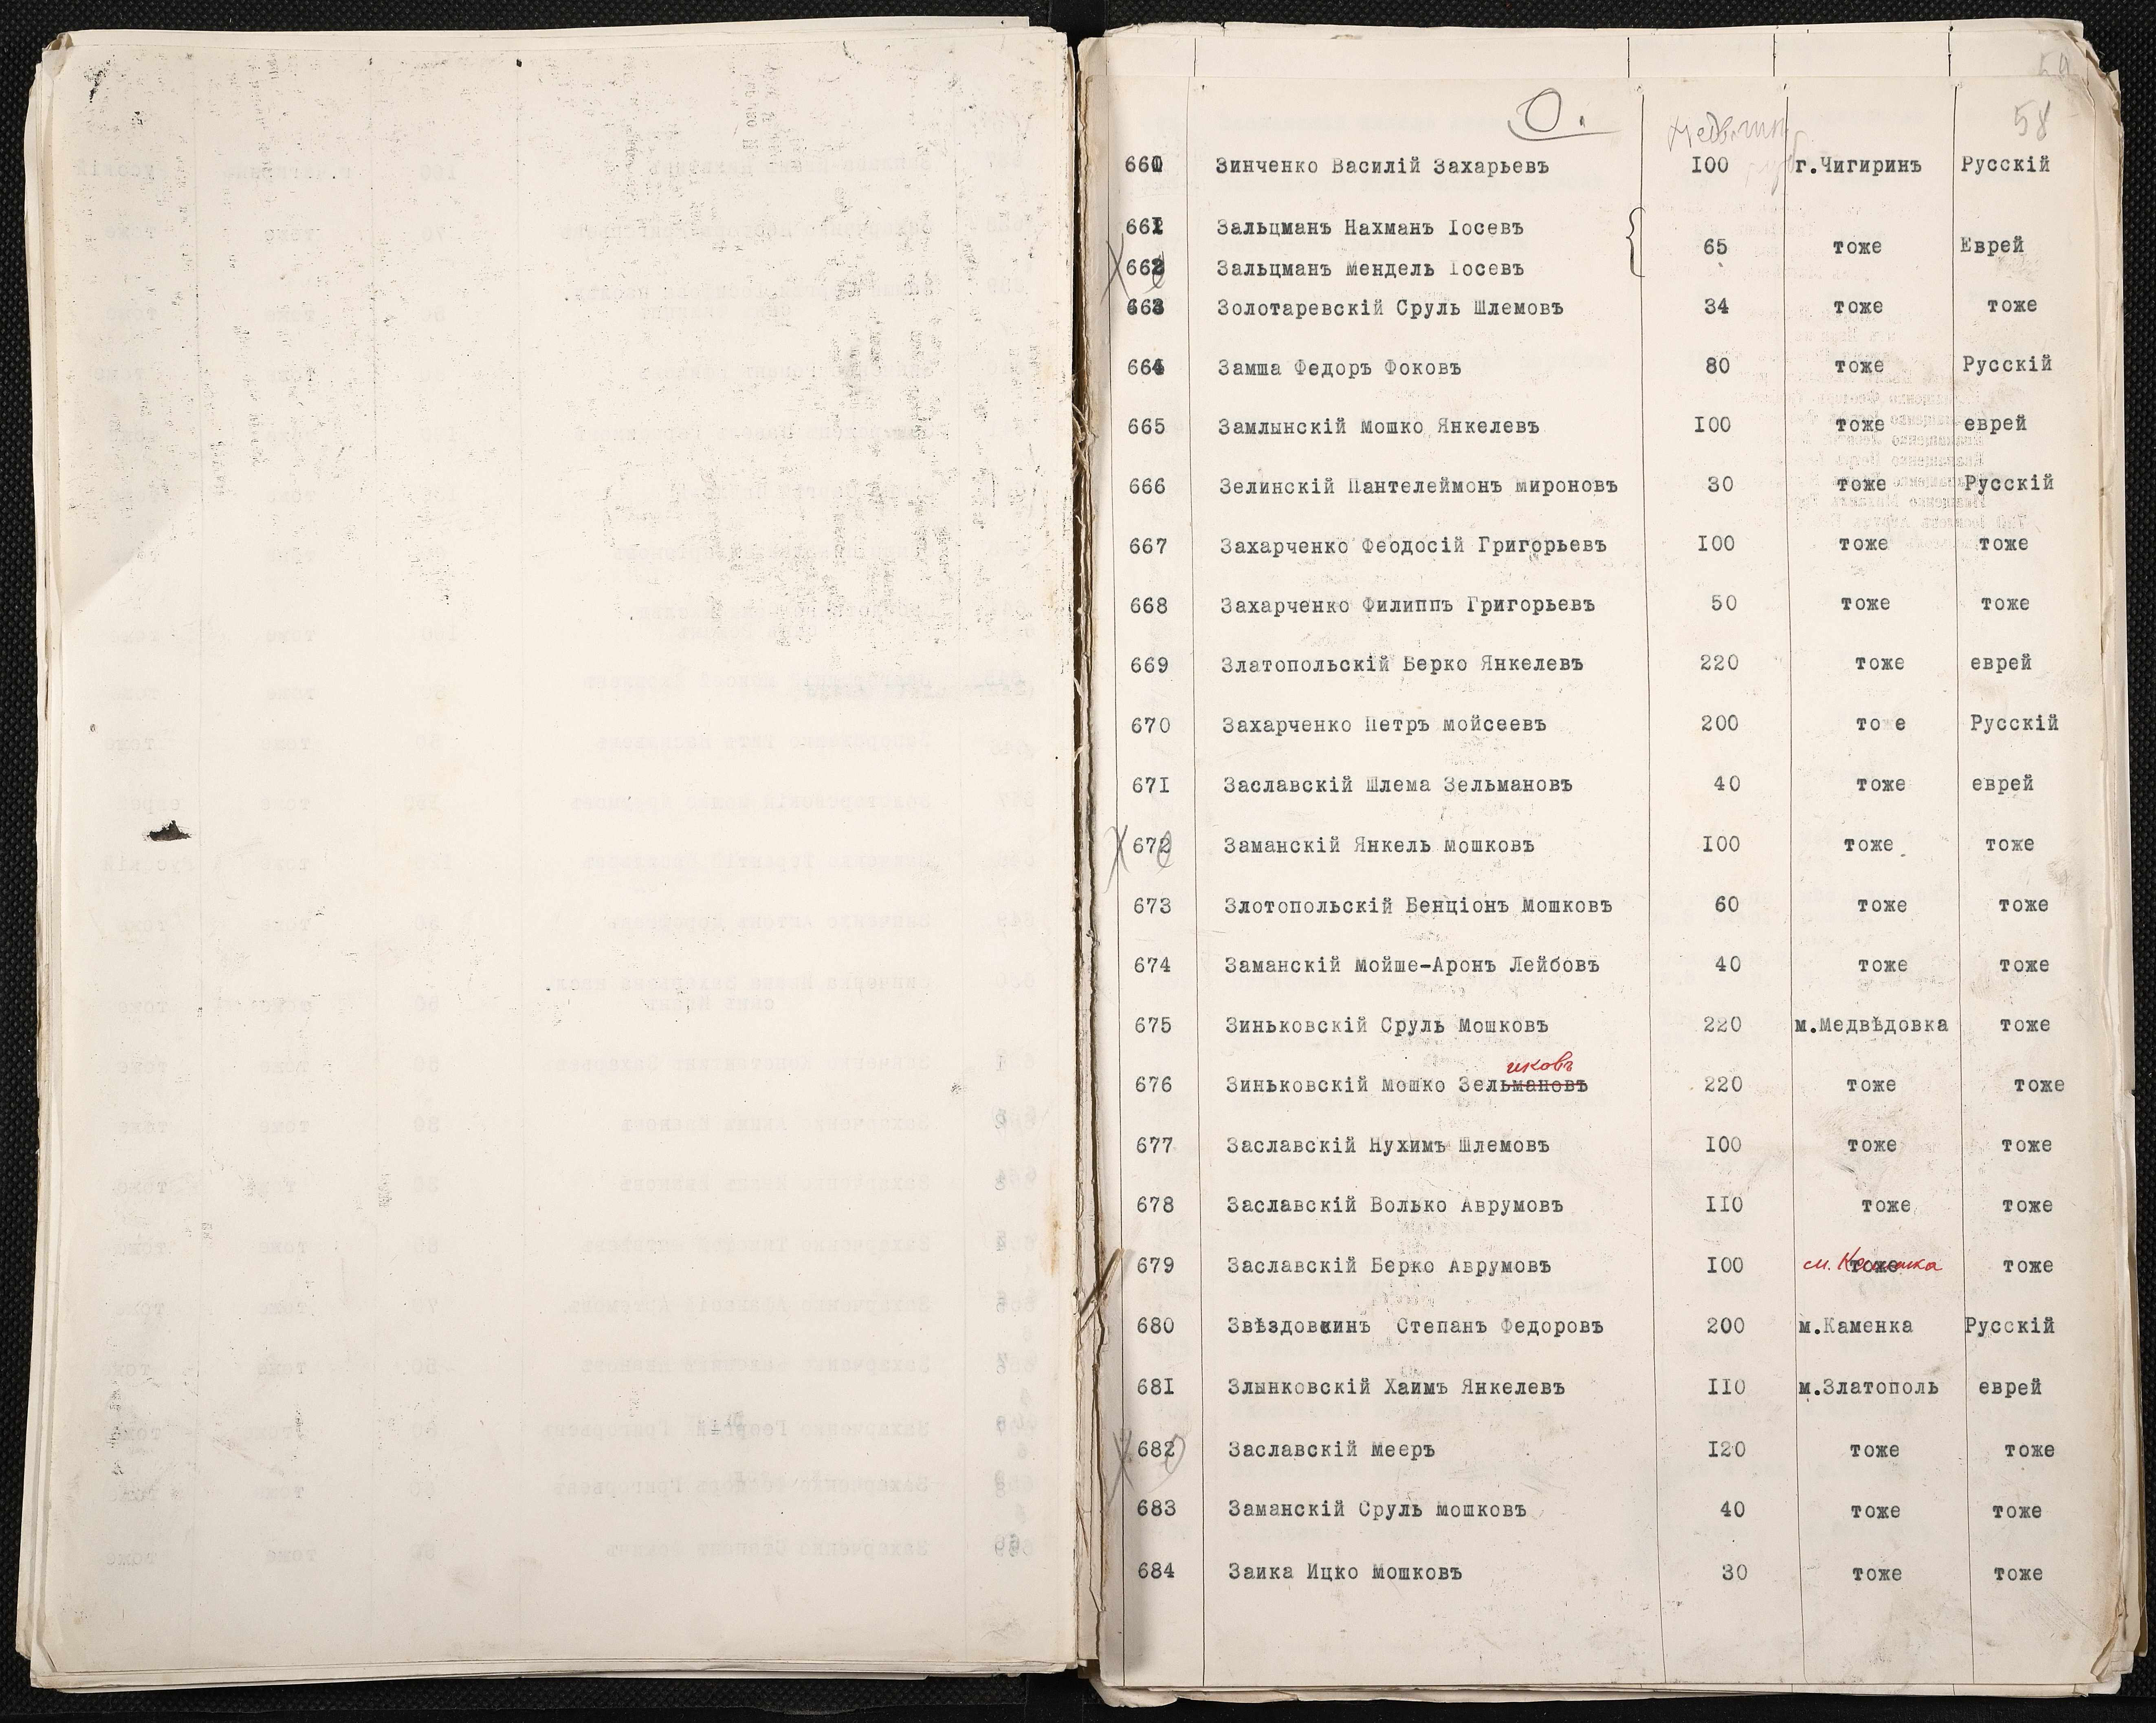 О.
58
660 Зинченко Василій Захарьевъ 100 г.Чигиринъ Русскій
661 Зальцманъ Нахманъ Іосевъ
65 тоже Еврей
662 Зальцманъ Мендель Іосевъ
663 Золотаревскій Сруль Шлемовъ 34 тоже тоже
664 Замша Федоръ Фоковъ 80 тоже Русскій
665 Замлынскій Мошко Янкелевъ I00 тоже еврей
666 Зелинскій Пантелеймонъ Мироновъ 30 тоже Русскій
667 Захарченко Феодосій Григорьевъ I00 тоже тоже
668 Захарченко Филиппъ Григорьевъ 50 тоже тоже
669 Златопольскій Берко Янкелевъ 220 тоже еврей
670 Захарченко Петръ Мойсеевъ 200 то е Русскій
67I Заславскій Шлема Зельмановъ 40 тоже еврей
672 Заманскій Янкель Мошковъ I00 тоже тоже
673 Злотопольскій Бенціонъ Мошковъ 60 тоже тоже
674 Заманскій Мойше-Аронъ Лейбовъ 40 тоже тоже
675 Зиньковскій Сруль Мошковъ 220 м.Медвѣдовка тоже
иковъ
676 Зиньковскій Мошко Зельмановъ 220 тоже тоже
677 Заславскій Нухимъ Шлемовъ I00 тоже тоже
678 Заславскій Волько Аврумовъ II0 тоже тоже
679 Заславскій Берко Аврумовъ I00 м. Каменка тоже тоже
680 Звѣздовкинъ Степанъ Федоровъ 200 м.Каменка Русскій
68I Злынковскій Хаимъ Янкелевъ II0 м.Златополь еврей
682 Заславскій Мееръ I20 тоже тоже
683 Заманскій Сруль Мошковъ 40 тоже тоже
684 Заика Ицко Мошковъ 30 тоже тоже